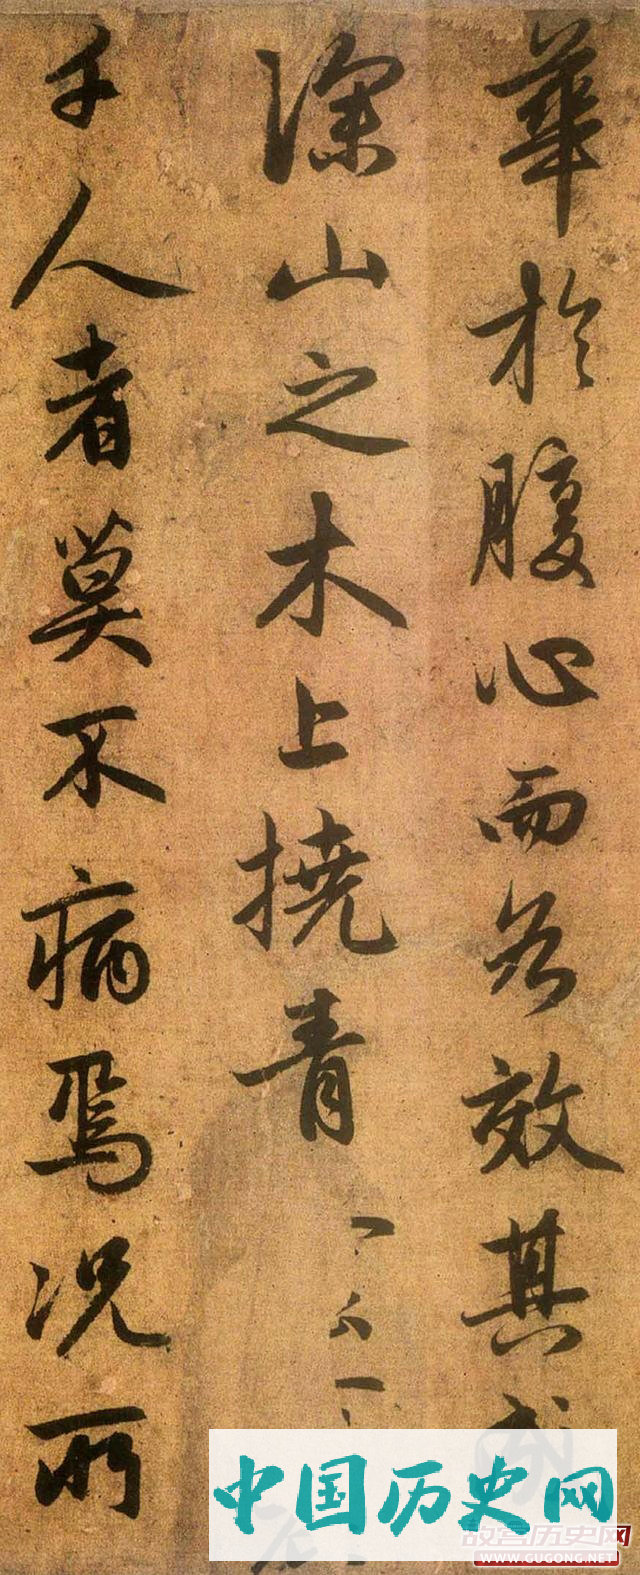 華於腹心而各效其
深山之木上撓青
千人者莫不病焉况所
中国历史网
故宫历史网
www.GUGONG.net